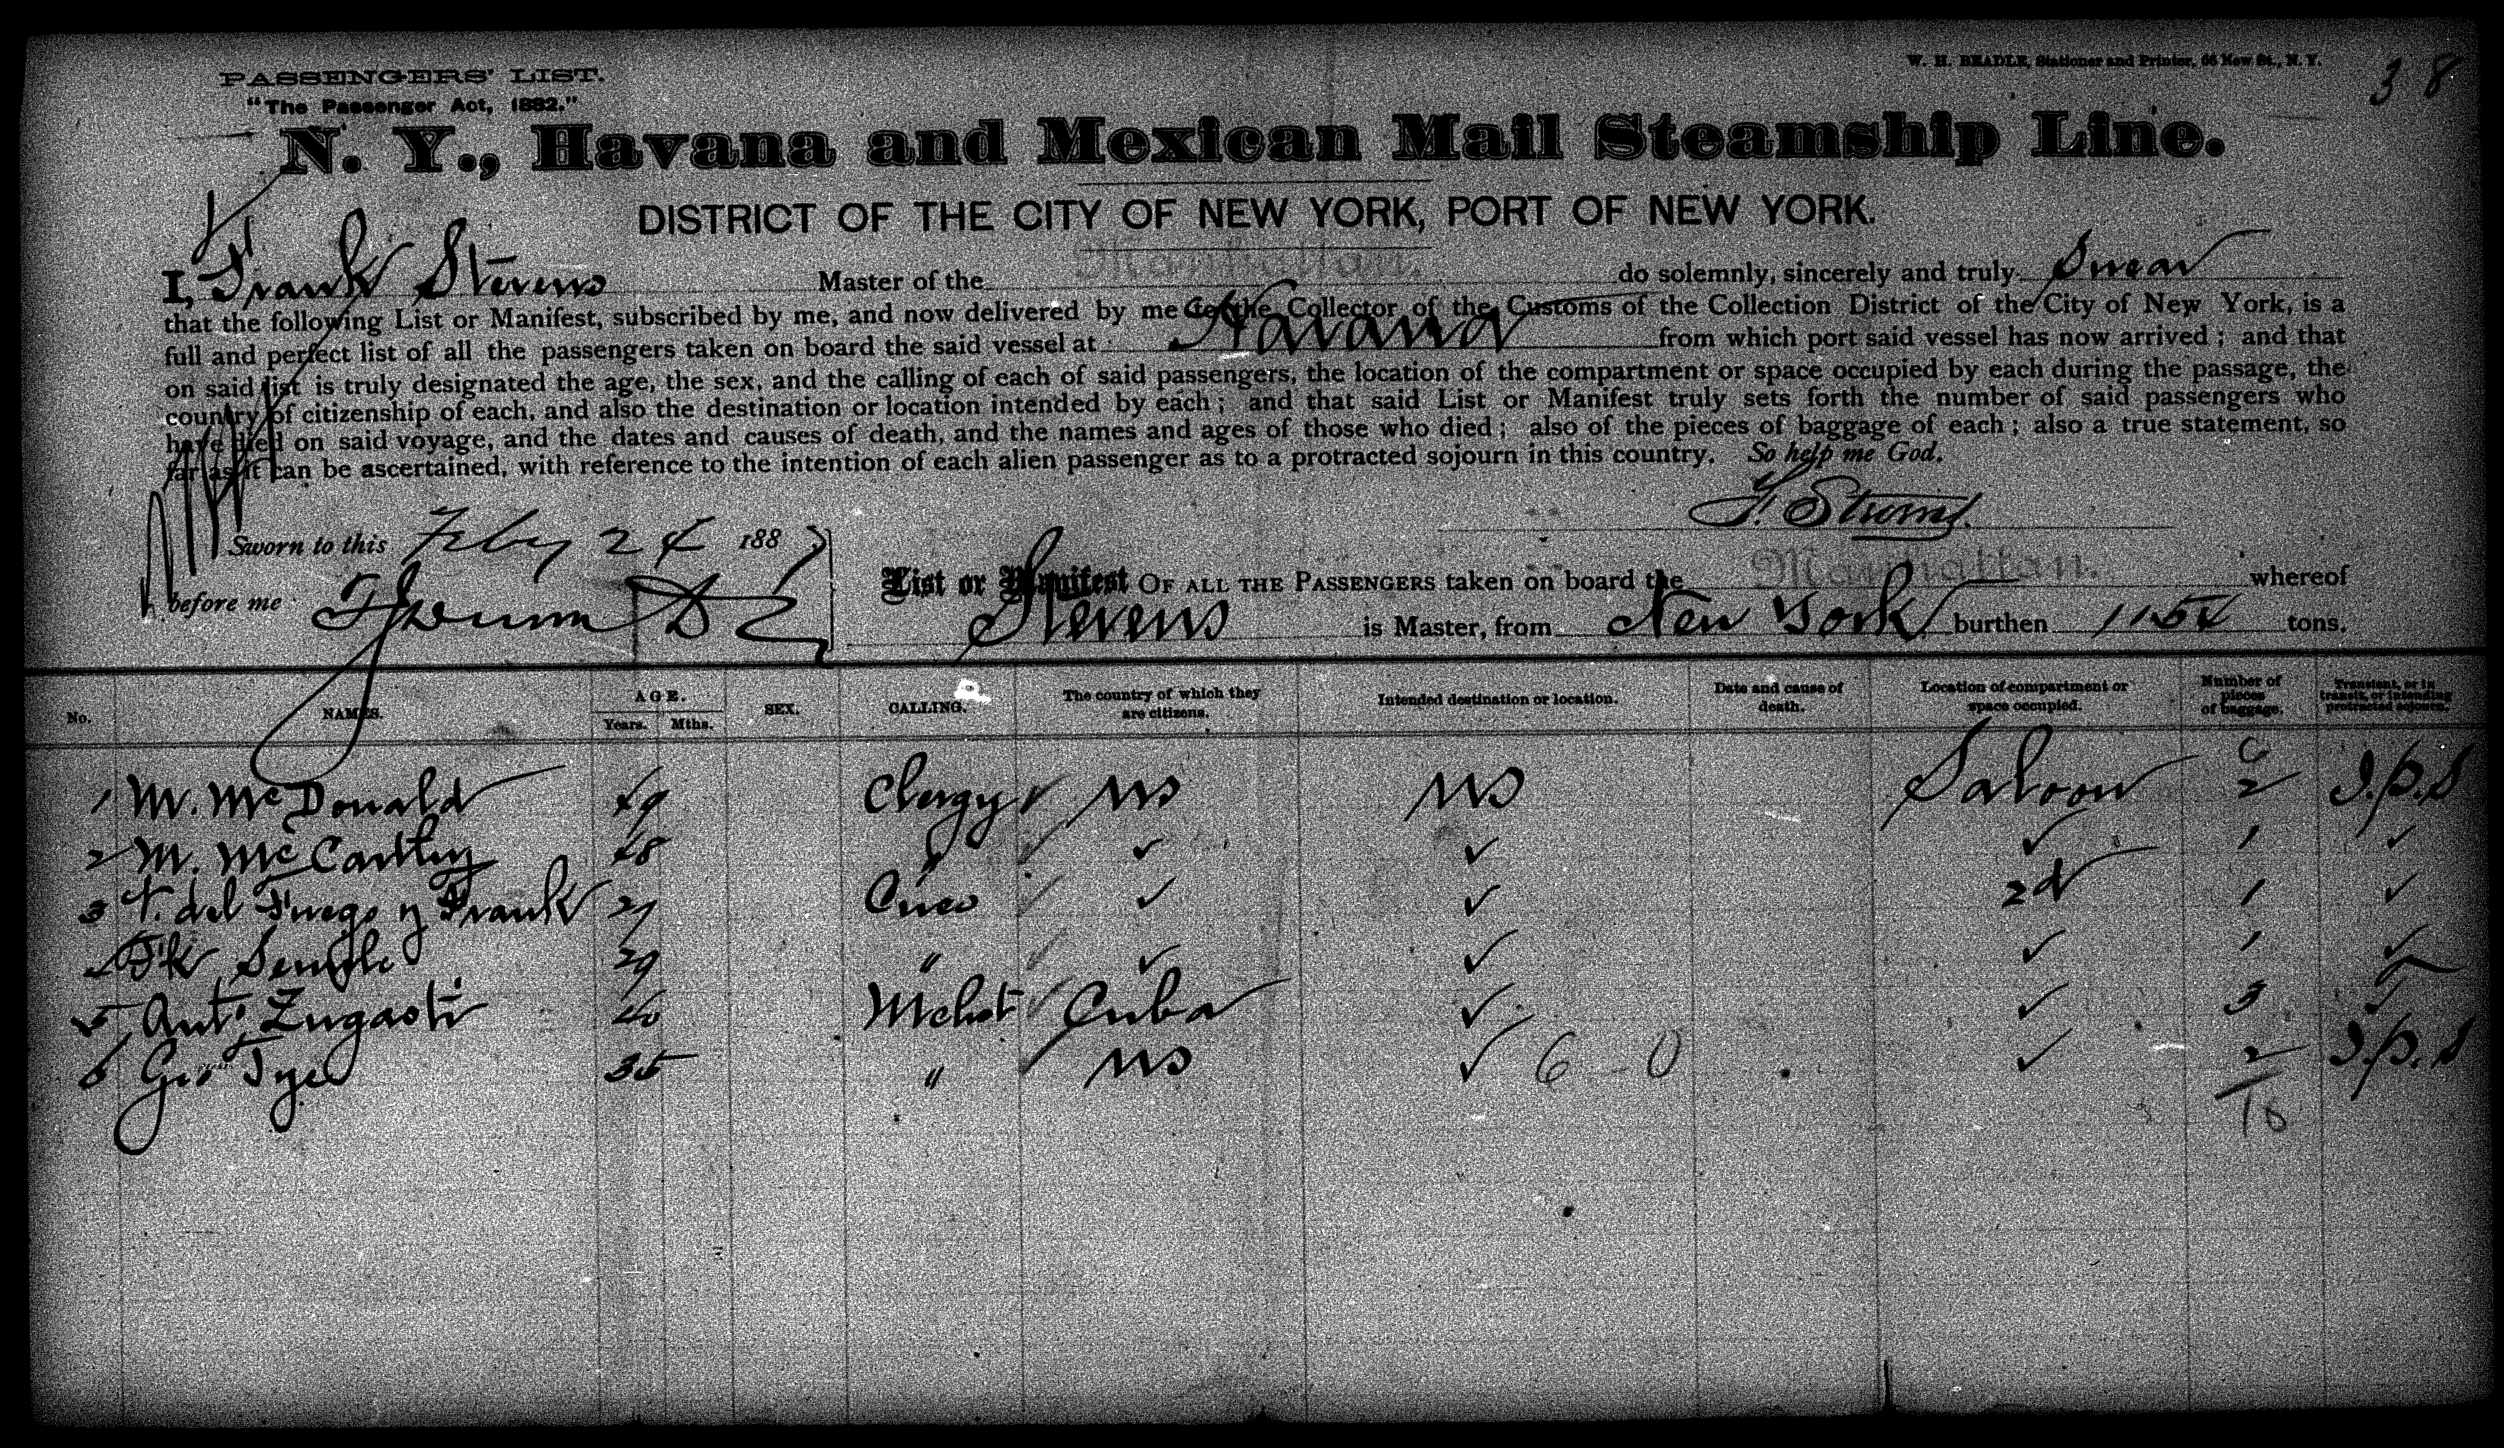 W. H. BEADLE, Stationer and Printer, 66 New St., N. Y.
38
PASSENGERS' LIST.
"The Passenger Act, 1882."
N. Y., Havana and Mexican Mail Steamship Line.
DISTRICT OF THE CITY OF NEW YORK, PORT OF NEW YORK.
I, Frank Stevens Master of the Manhattan. do solemnly, sincerely and truly Swear
that the following List or Manifest, subscribed by me, and now delivered by me to the Collector of the Customs of the Collection District of the City of New York, is a
full and perfect list of all the passengers taken on board the said vessel at Havana from which port said vessel has now arrived; and that
on said list is truly designated the age, the sex, and the calling of each of said passengers, the location of the compartment or space occupied by each during the passage, the
country of citizenship of each, and also the destination or location intended by each; and that said List or Manifest truly sets forth the number of said passengers who
have died on said voyage, and the dates and causes of death, and the names and ages of those who died; also of the pieces of baggage of each; also a true statement, so
far as it can be ascertained, with reference to the intention of each alien passenger as to a protracted sojourn in this country. So help me God.
F. Stevens
Sworn to this Feby 24 188
before me
List or Manifest OF ALL THE PASSENGERS taken on board the Manhattan. whereof
Stevens is Master, from New York burthen 1154 tons.
No. NAMES. AGE. Years. Mths. SEX. CALLING. The country of which they are citizens. Intended destination or location. Date and cause of death. Location of compartment or space occupied. Number of pieces of baggage. Transient, or in transit, or intending protracted sojourn.
1 M. McDonald 49 Clergy US US Saloon 2 I.p.S
2 M. McCarthy 48 ✓ ✓ ✓ 1 ✓
3 F. del Fuego y Frank 27 ✓ ✓ 2d 1 ✓
4 Fk Semple 29 " ✓ ✓ ✓ 1 ✓
5 Ant. Zugasti 40 Mchst Cuba ✓ ✓ 3 ✓
6 Geo Tyce 35 " US ✓ 6 - 0 ✓ 2 I.p.S
10